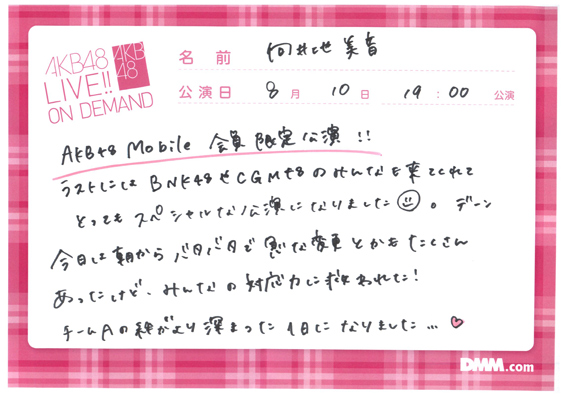 AKB48
LIVE!!
ON DEMAND
AKB
48
名 前 向井地 美音
公演日 8 月 10 日 19 : 00 公演
AKB48 Mobile 会員限定公演 !!
ラストには BNK48やCGM48のみんなも来てくれて
とってもスペシャルな公演になりました 。 デーン
今日は朝からバタバタで急な変更とかもたくさん
あったけど、みんなの対応力に救われた!
チームAの絆がより深まった1日になりました…
DMM.com